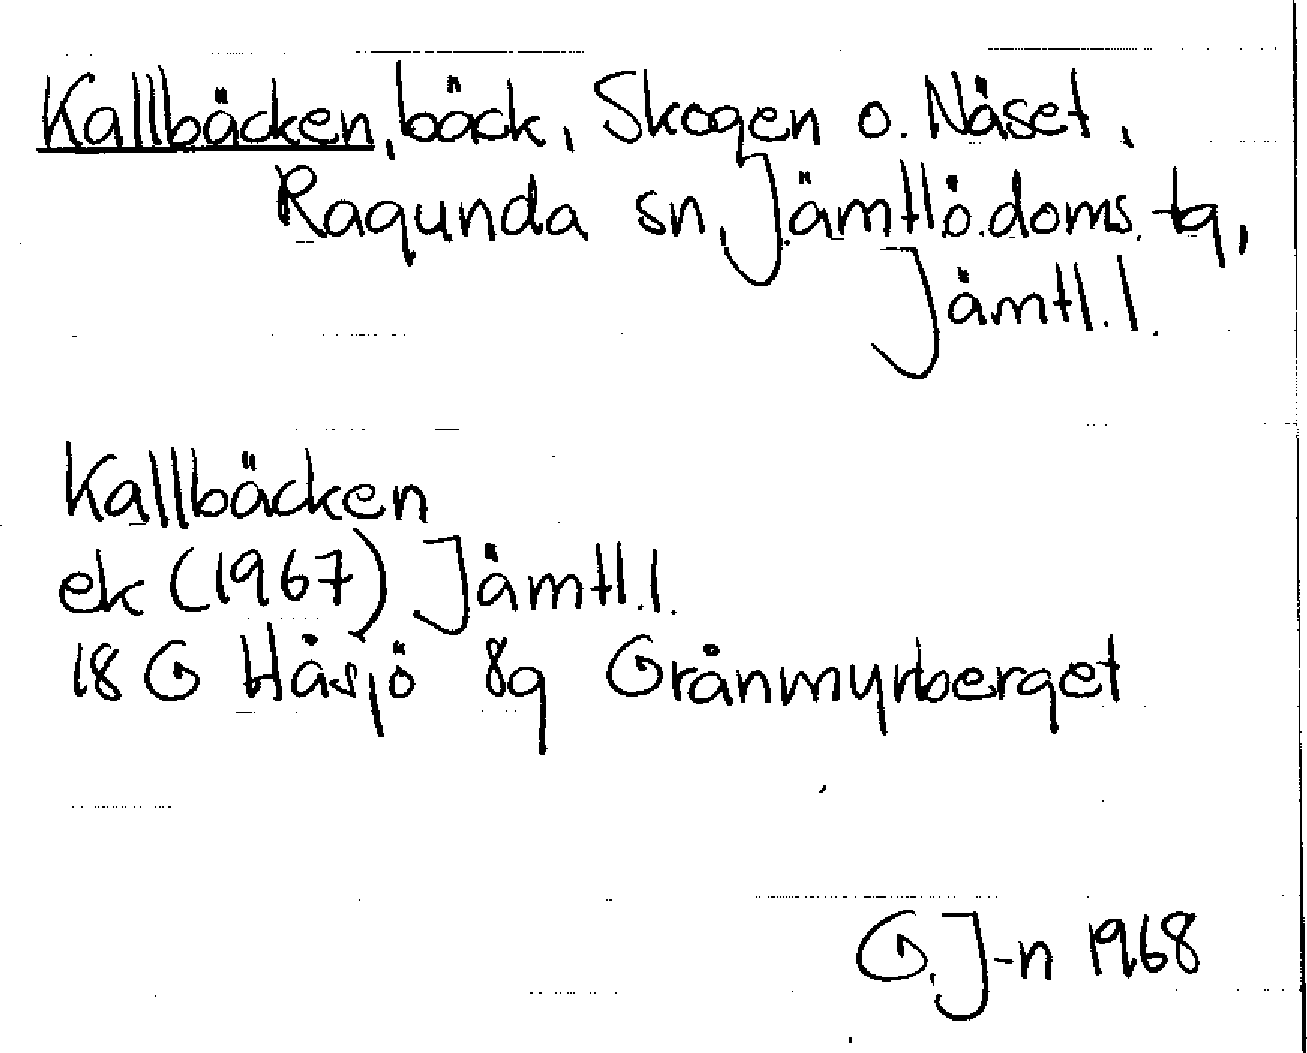 Kallbäcken, bäck, Skogen o. Näset,
Ragunda sn, Jämtl.ö.doms. tg,
Jämtl.l.
Kallbäcken
ek (1967) Jämtl.l.
18 G Håsjö 8g Grånmyrberget
G.J-n 1968